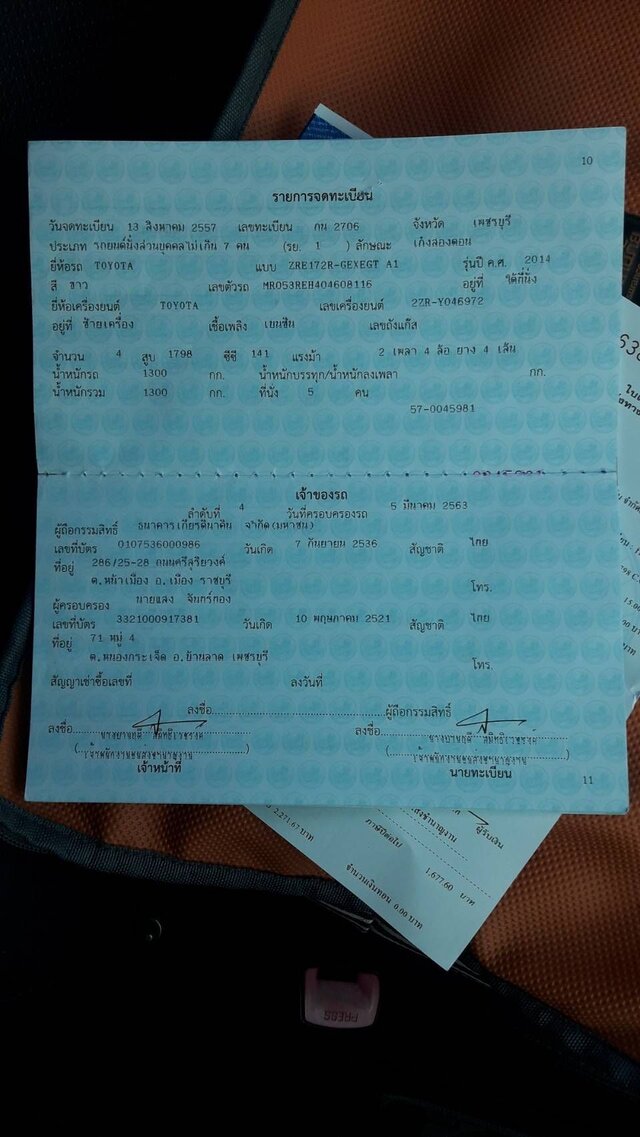 10
รายการจดทะเบียน
วันจดทะเบียน 13 สิงหาคม 2557 เลขทะเบียน กน 2706 จังหวัด เพชรบุรี
ประเภท รถยนต์นั่งส่วนบุคคลไม่เกิน 7 คน (รย. 1 ) ลักษณะ เก๋งสองตอน
ยี่ห้อรถ TOYOTA แบบ ZRE172R-GEXEGT A1 รุ่นปี ค.ศ. 2014
สี ขาว เลขตัวรถ MR053REH404608116 อยู่ที่ ใต้ที่นั่ง
ยี่ห้อเครื่องยนต์ TOYOTA เลขเครื่องยนต์ 2ZR-Y046972
อยู่ที่ ซ้ายเครื่อง เชื้อเพลิง เบนซิน เลขถังแก๊ส
จำนวน 4 สูบ 1798 ซีซี 141 แรงม้า 2 เพลา 4 ล้อ ยาง 4 เส้น
น้ำหนักรถ 1300 กก. น้ำหนักบรรทุก/น้ำหนักลงเพลา กก.
น้ำหนักรวม 1300 กก. ที่นั่ง 5 คน
57-0045981
เจ้าของรถ
ลำดับที่ 4 วันที่ครอบครองรถ 5 มีนาคม 2563
ผู้ถือกรรมสิทธิ์ ธนาคารเกียรตินาคิน จำกัด(มหาชน)
เลขที่บัตร 0107536000986 วันเกิด 7 กันยายน 2536 สัญชาติ ไทย
ที่อยู่ 286/25-28 ถนนศรีสุริยวงศ์
ต.หน้าเมือง อ.เมือง ราชบุรี โทร.
ผู้ครอบครอง นายแสง จันทร์ทอง
เลขที่บัตร 3321000917381 วันเกิด 10 พฤษภาคม 2521 สัญชาติ ไทย
ที่อยู่ 71 หมู่ 4
ต.หนองกระเจ็ด อ.บ้านลาด เพชรบุรี โทร.
สัญญาเช่าซื้อเลขที่ ลงวันที่
ลงชื่อ ผู้ถือกรรมสิทธิ์
ลงชื่อ ลงชื่อ
เจ้าหน้าที่ นายทะเบียน
11
2,271.67 บาท
ผู้รับเงิน
ภาษีปีต่อไป 1,677.60 บาท
จำนวนเงินทอน 0.00 บาท
PRESS